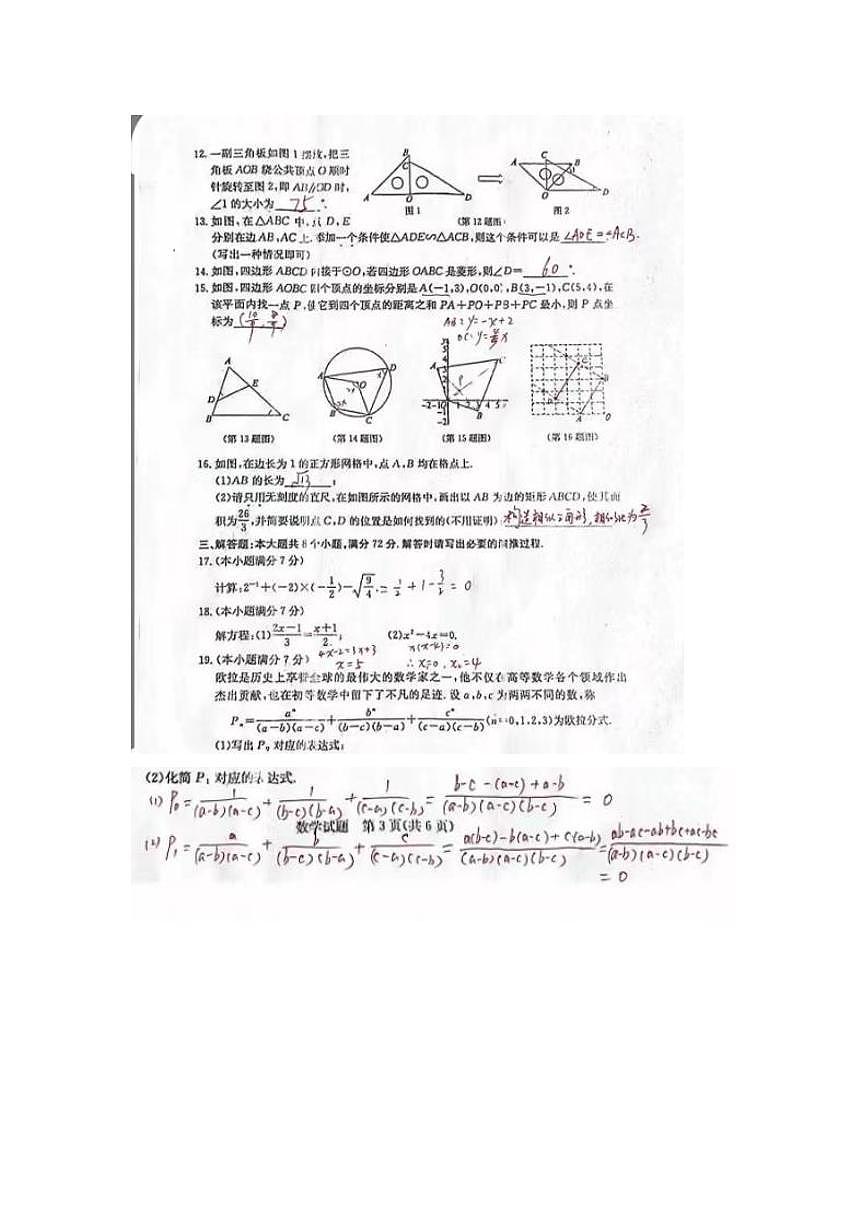 12.一副三角板如图1摆放,把三
角板AOB绕公共顶点O顺时
针旋转至图2,即AB//OD时,
∠1的大小为 75 °.
图1
图2
(第12题图)
13.如图,在△ABC中,点D,E
分别在边AB,AC上.添加一个条件使△ADE∽△ACB,则这个条件可以是 ∠ADE=∠ACB.
(写出一种情况即可)
14.如图,四边形ABCD内接于⊙O,若四边形OABC是菱形,则∠D= 60 °.
15.如图,四边形AOBC四个顶点的坐标分别是A(-1,3),O(0,0),B(3,-1),C(5,4),在
该平面内找一点P,使它到四个顶点的距离之和PA+PO+PB+PC最小,则P点坐
标为 (10/9, 8/9)
AB:y=-x+2
OC:y=4/5x
(第13题图)
(第14题图)
(第15题图)
(第16题图)
16.如图,在边长为1的正方形网格中,点A,B均在格点上.
(1)AB的长为 √13 ;
(2)请只用无刻度的直尺,在如图所示的网格中,画出以AB为边的矩形ABCD,使其面
积为26/3,并简要说明点C,D的位置是如何找到的(不用证明) 构造相似三角形,相似比为2/3
三、解答题:本大题共8个小题,满分72分.解答时请写出必要的演推过程.
17.(本小题满分7分)
计算:2⁻¹+(-2)×(-1/2)-√(9/4).=1/2+1-3/2=0
18.(本小题满分7分)
解方程:(1)(2x-1)/3=(x+1)/2; (2)x²-4x=0.
4x-2=3x+3 x(x-4)=0
19.(本小题满分7分) x=5 ∴x₁=0,x₂=4
欧拉是历史上享誉全球的最伟大的数学家之一,他不仅在高等数学各个领域作出
杰出贡献,也在初等数学中留下了不凡的足迹.设a,b,c为两两不同的数,称
Pₙ=aⁿ/((a-b)(a-c))+bⁿ/((b-c)(b-a))+cⁿ/((c-a)(c-b))(n=0,1,2,3)为欧拉分式.
(1)写出P₀对应的表达式;
(2)化简P₁对应的表达式.
(1) P₀=1/((a-b)(a-c))+1/((b-c)(b-a))+1/((c-a)(c-b))=(b-c-(a-c)+a-b)/((a-b)(a-c)(b-c))=0
数学试题 第3页(共6页)
(2) P₁=a/((a-b)(a-c))+b/((b-c)(b-a))+c/((c-a)(c-b))=(a(b-c)-b(a-c)+c(a-b))/((a-b)(a-c)(b-c))=(ab-ac-ab+bc+ac-bc)/((a-b)(a-c)(b-c))
=0